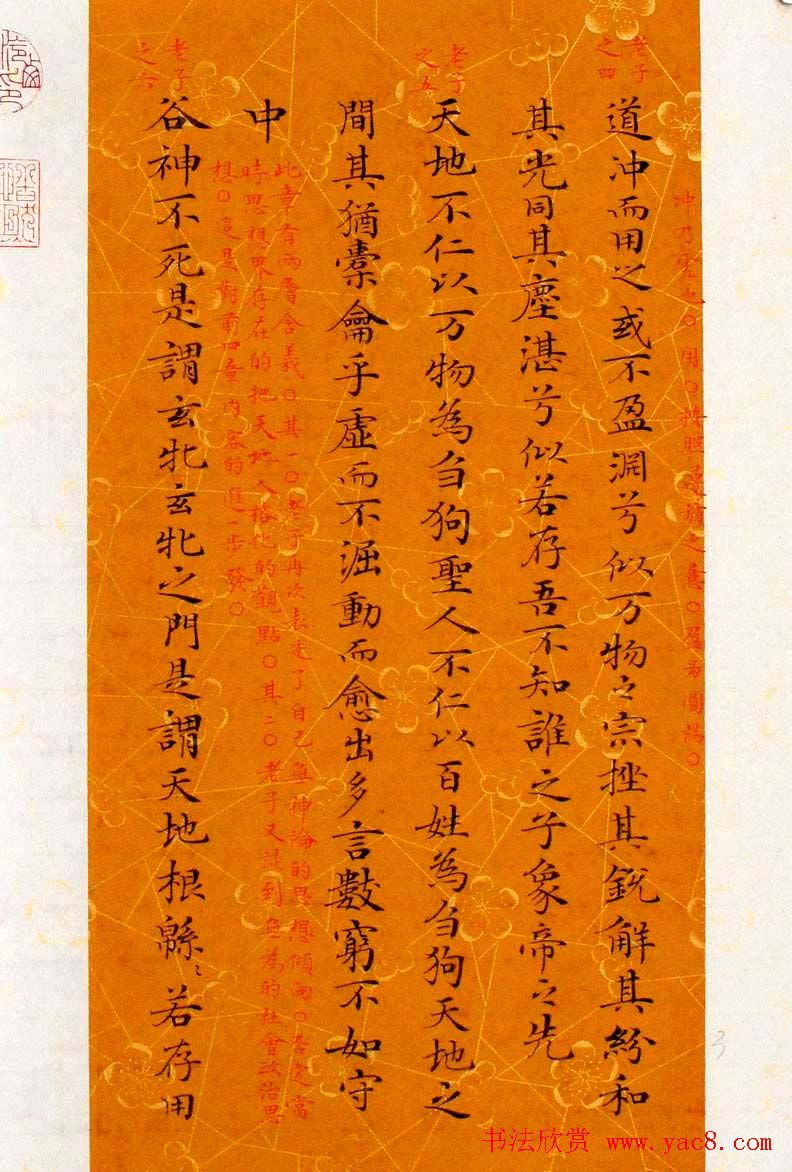 老子
之四
冲乃虚也○用○按照
之意○盈为圆满○
道冲而用之或不盈渊兮似万物之宗挫其銳解其紛和
其光同其塵湛兮似若存吾不知誰之子象帝之先
老子
之五
天地不仁以万物為刍狗聖人不仁以百姓為刍狗天地之
間其猶橐龠乎虛而不淈動而愈出多言數窮不如守
中
此章有兩層含義○其一○老子再次表述了自己無神論的思想傾向○否定當
時思想界存在的把天地人格化的觀點○其二○老子又談到無為的社會政治思
想○這是對前四章內容的進一步發○
老子
之六
谷神不死是謂玄牝玄牝之門是謂天地根緜〻若存用
3
书法欣赏 www.yac8.com